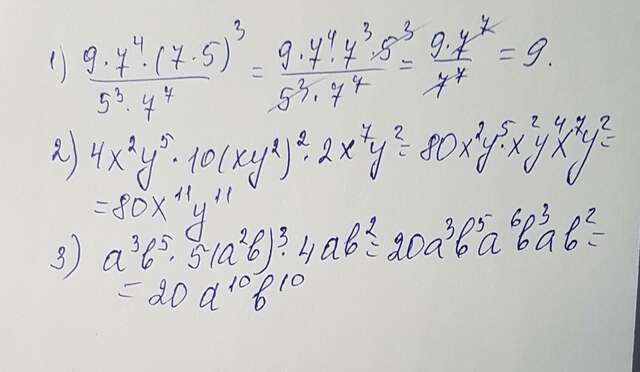 1) \frac{9·7⁴·(7·5)³}{5³·7⁷} = \frac{9·7⁴7³·5³}{5³·7⁷} = \frac{9·7⁷}{7⁷} = 9.
2) 4x²y⁵·10(xy²)²·2x⁷y² = 80x²y⁵·x²y⁴x⁷y² =
= 80x¹¹y¹¹
3) a³b⁵·5(a²b)³·4ab² = 20a³b⁵a⁶b³ab² =
= 20a¹⁰b¹⁰